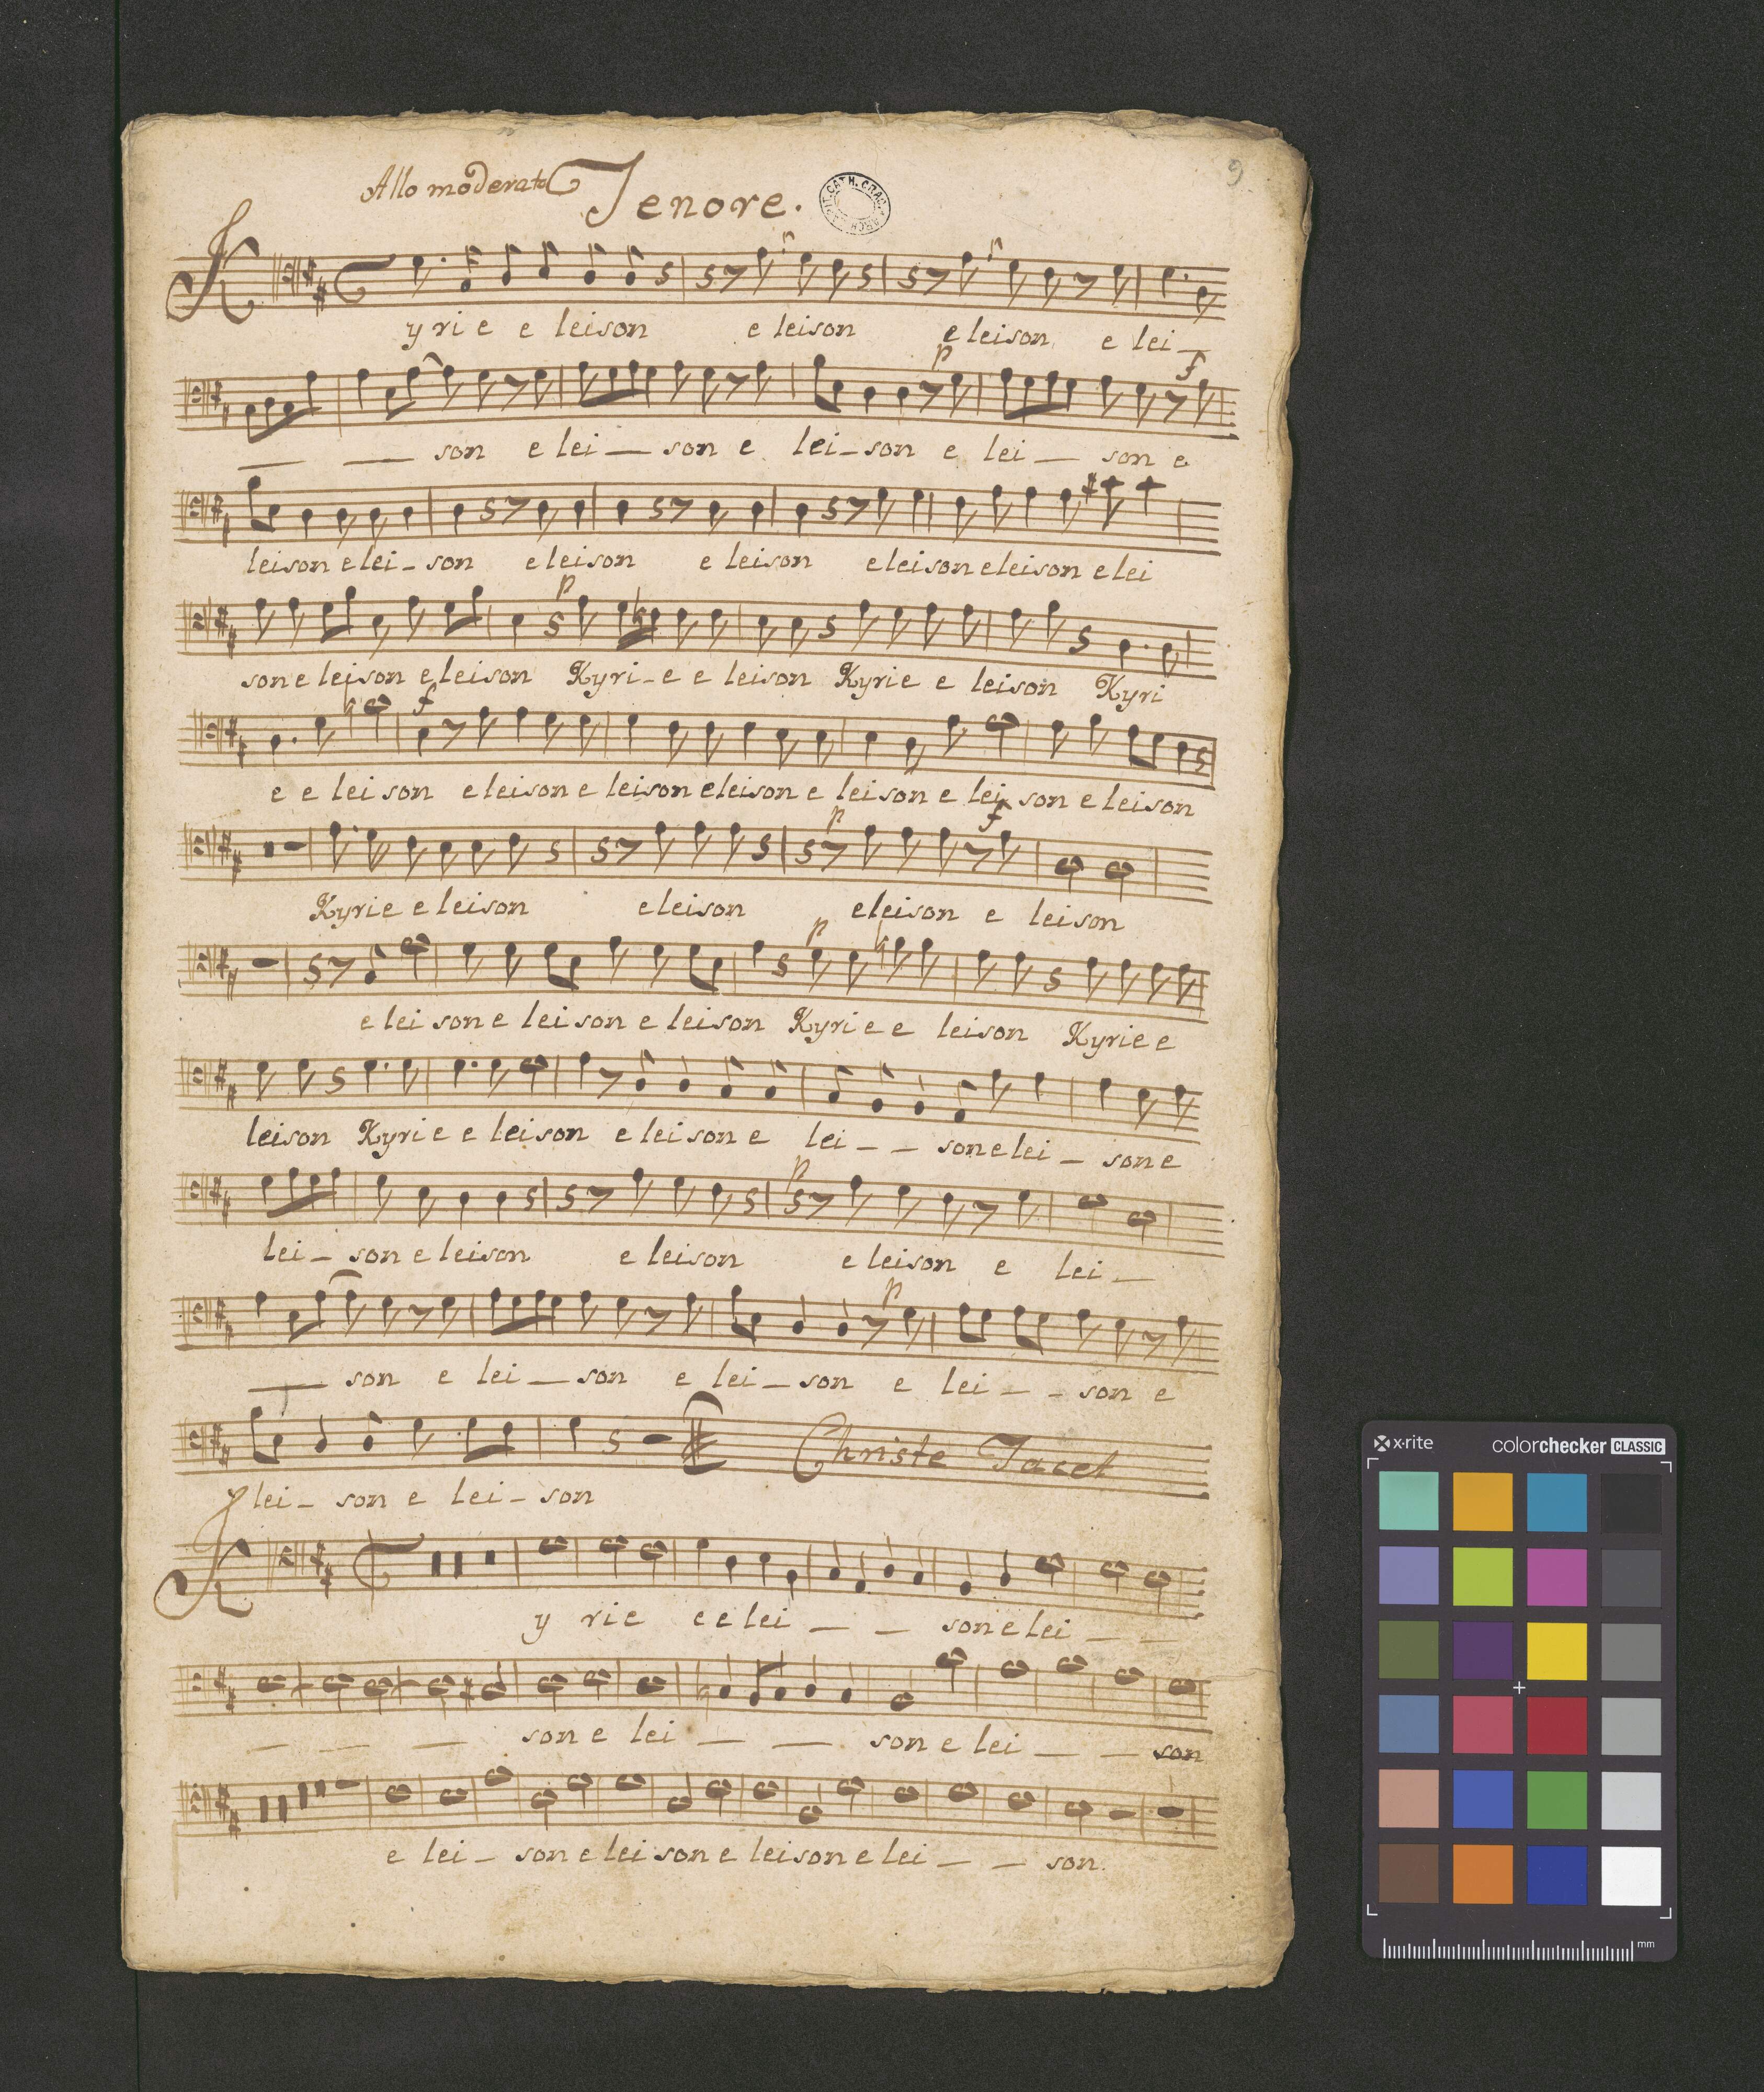 9
Allo moderato Tenore.
Kyrie e leison e leison e leison e lei _
_ _ son e lei _ son e lei _ son e lei _ son e
leison e lei _ son e leison e leison e leison e leison e lei
son e leison e leison Kyri _ e e leison Kyrie e leison Kyri
e e lei son e leison e leison e leison e leison e lei son e leison
Kyrie e leison e leison e leison e leison
e lei son e lei son e leison Kyri e e leison Kyrie e
leison Kyri e e leison e lei son e lei _ _ son e lei _ son e
lei _ son e leison e leison e leison e lei _
_ son e lei _ son e lei _ son e lei _ _ son e
lei _ son e lei _ son Christe Tacet
Ky rie e e lei _ _ son e lei _ _
_ _ _ son e lei _ _ son e lei _ _ son
e lei _ son e lei son e leison e lei _ _ son.
x-rite colorchecker CLASSIC
mm